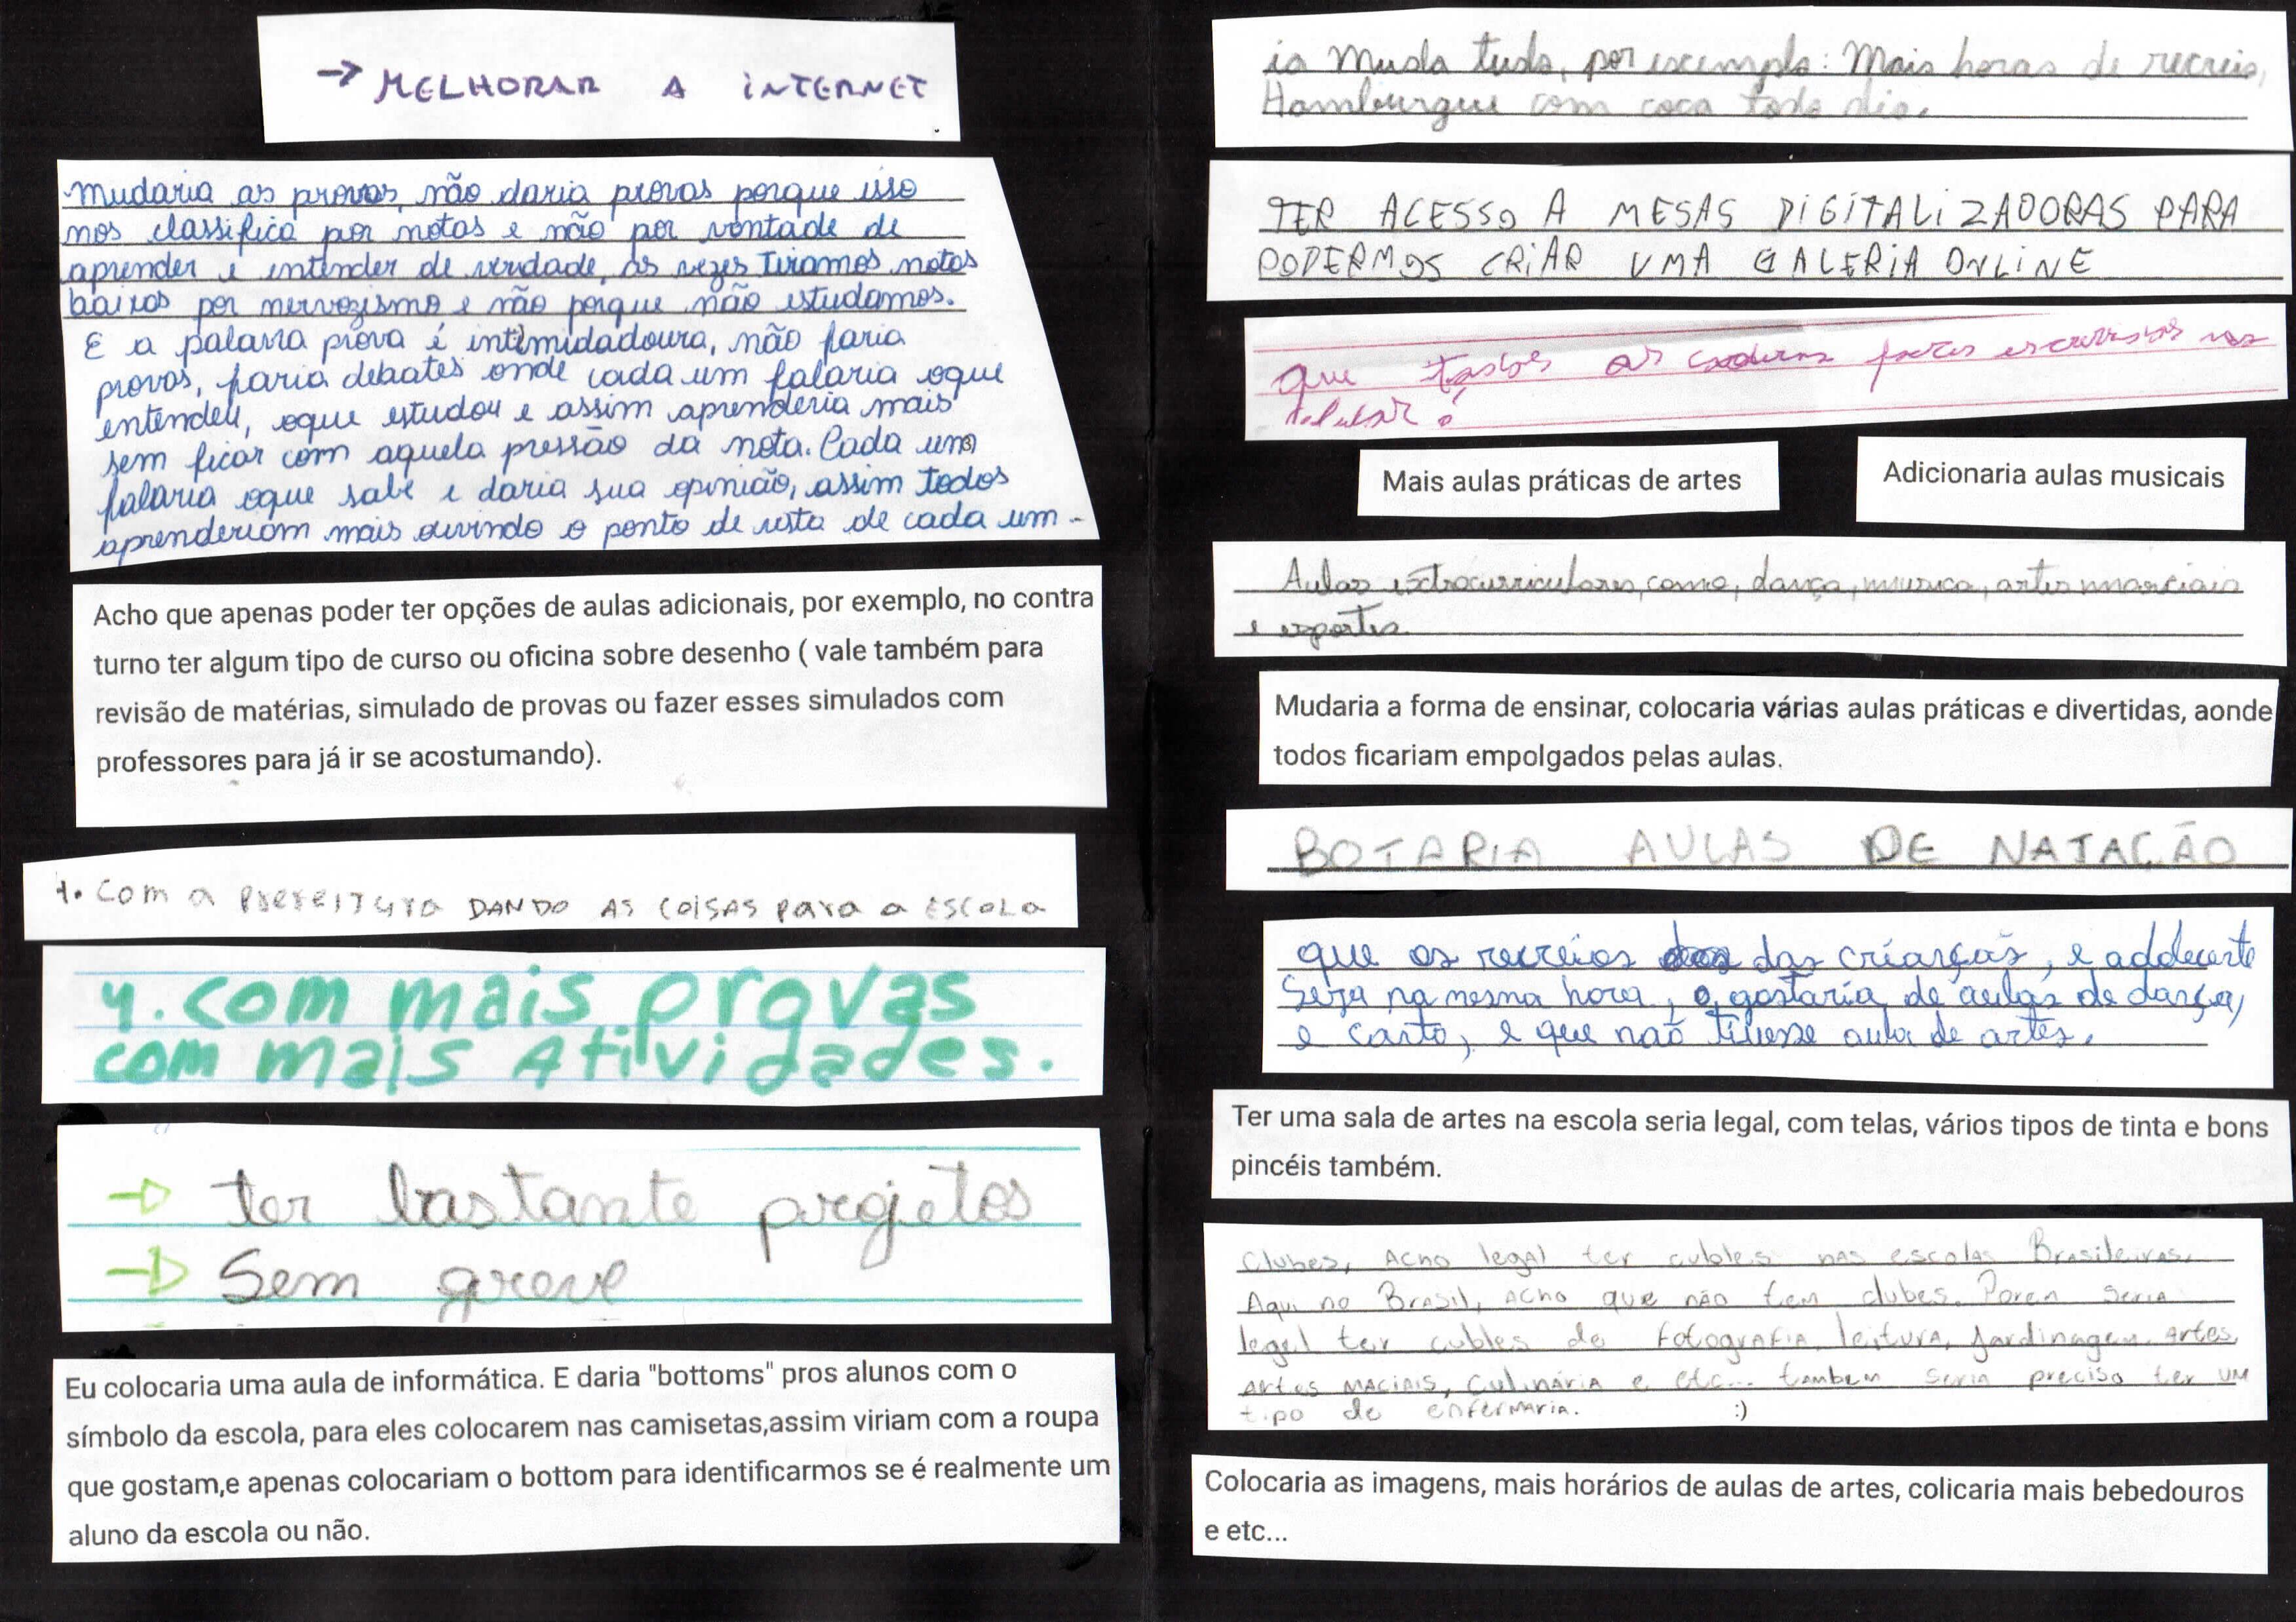 → MELHORAR A INTERNET
mudaria as provas, não daria provas porque isso
nos classifica por notas e não por vontade de
aprender e intender de verdade, as vezes tiramos notas
baixas por nervozismo e não porque não estudamos.
E a palavra prova é intimidadoura, não faria
provas, faria debates onde cada um falaria oque
entendeu, oque estudou e assim aprenderia mais
sem ficar com aquela pressão da nota. Cada um
falaria oque sabe e daria sua opinião, assim todos
aprenderiam mais ouvindo o ponto de vista de cada um.
Acho que apenas poder ter opções de aulas adicionais, por exemplo, no contra
turno ter algum tipo de curso ou oficina sobre desenho ( vale também para
revisão de matérias, simulado de provas ou fazer esses simulados com
professores para já ir se acostumando).
4. Com a prefeitura DANDO AS COISAS para a ESCOLA
4. com mais provas
com mais Atilvidades.
→ ter bastante projetos
→ Sem greve
Eu colocaria uma aula de informática. E daria "bottoms" pros alunos com o
símbolo da escola, para eles colocarem nas camisetas,assim viriam com a roupa
que gostam,e apenas colocariam o bottom para identificarmos se é realmente um
aluno da escola ou não.
ia Muda tudo, por escemplo: Mais horas de recreio,
Hamburgue com coca todo dia.
TER ACESSO A MESAS DIGITALIZADORAS PARA
PODERMOS CRIAR UMA GALERIA ONLINE
que as
Mais aulas práticas de artes
Adicionaria aulas musicais
Aulas extracurriculares, como, dança, musica, artes marciais
e esportes.
Mudaria a forma de ensinar, colocaria várias aulas práticas e divertidas, aonde
todos ficariam empolgados pelas aulas.
BOTARIA AULAS DE NATAÇÃO
que os recreios das crianças, e adolecente
Seja na mesma hora, gostaria de aulas de dança,
e canto, e que não tivesse aula de artes.
Ter uma sala de artes na escola seria legal, com telas, vários tipos de tinta e bons
pincéis também.
Clubes, Acho legal ter cubles nas escolas Brasileiras.
Aqui no Brasil, Acho que não tem clubes. Poren seria
legal ter cubles de fotografia, leitura, Jardinagem, Artes,
Artes MACIAIS, Culinária e etc... também seria preciso ter um
tipo de enfermaria. :)
Colocaria as imagens, mais horários de aulas de artes, colicaria mais bebedouros
e etc...